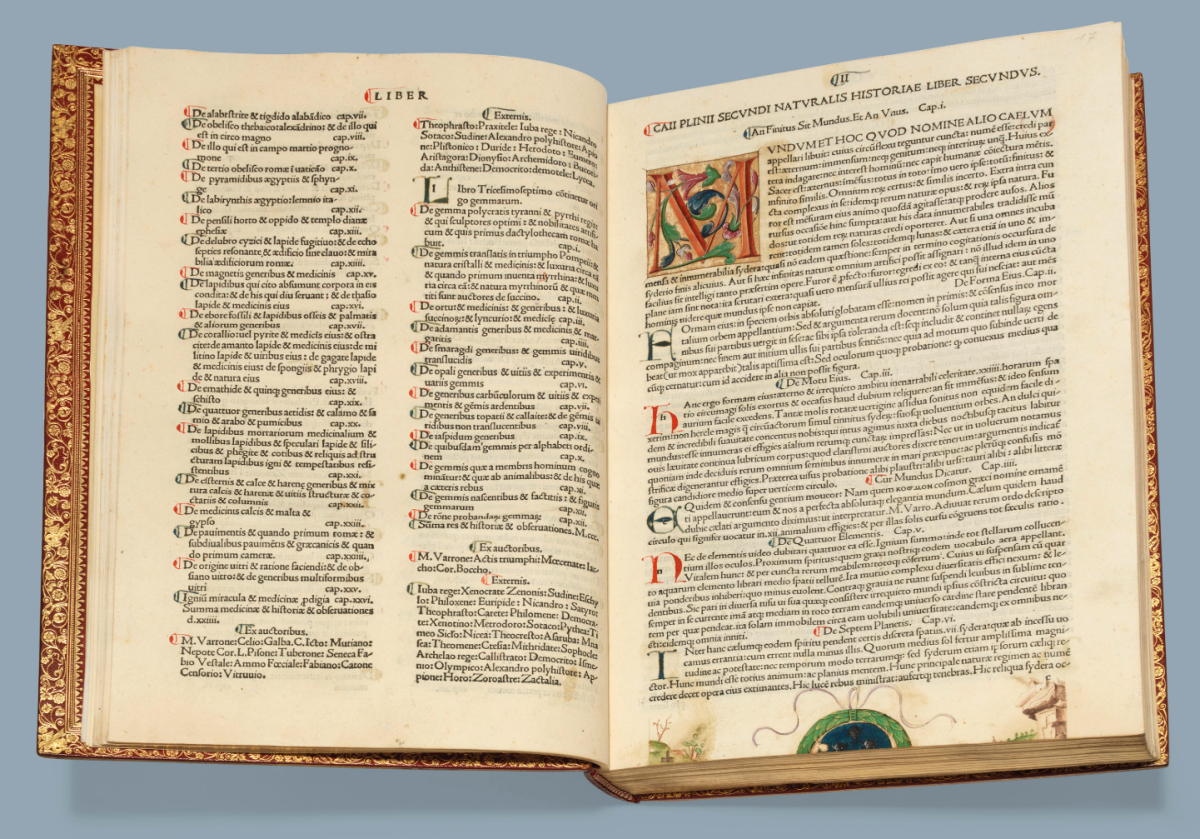 LIBER
De alabestrite & tigdido alabãdico cap.vii.
De obelisco thebaico alexãdrino: & de illo qui
est in circo magno cap.viii.
De illo qui est in campo martio progno-
mone cap.ix.
De tertio obelisco romæ ĩ uaticão cap.x.
De pyramidibus ægyptiis & sphyn-
ge cap.xi.
De labirynthis ægyptio: lemnio ita-
lico cap.xii.
De pensili horto & oppido & templo dianæ
ephesiæ cap.xiii.
De delubro cyzici & lapide fugitiuo: & de echo
septies resonante & ædificio sine clauo: & mira
bilia ædificiorum romæ. cap.xiiii.
De magnetis generibus & medicinis cap.xv.
De lapidibus qui cito absumunt corpora in eis
condita: & de his qui diu seruant: & de thasio
lapide & medicinis eius cap.xvi.
De ebore fossili & lapidibus osseis & palmatis
& aliorum generibus cap.xvii.
De corallio: uel pyrite & medicis eius: & ostra
cite: de amanto lapide & medicinis eius: de mi
litino lapide & uiribus eius: de gagate lapide
& medicinis eius: de spongiis & phrygio lapi
de & natura eius cap.xviii.
De emathide & quinq; generibus eius: &
schisto cap.xix.
De quattuor generibus aetidis: & calamo & sa
mio & arabo & pumicibus cap.xx.
De lapidibus mortariorum medicinalium &
mollibus lapidibus & speculari lapide & sili
cibus & phegite & cotibus & reliquis ad stru
cturam lapidibus igni & tempestatibus resi
stentibus cap.xxi.
De cisternis & calce & harenę generibus & mix
tura calcis & harenæ & uitiis structuræ & co-
ctariis & columnis cap.xxii.
De medicinis calcis & malta &
gypso cap.xxiii.
De pauimentis & quando primum romæ: &
subdiualibus pauimētis & græcanicis & quan
do primum cameræ. cap.xxiiii.
De origine uitri & ratione faciendi: & de ob-
siano uitro: & de generibus multiformibus
uitri cap.xxv.
Igniũ miracula & medicinæ ,pdigia cap.xxvi.
Summa medicinæ & historiæ & obseruationes
d.xxiiii.
Ex auctoribus.
M. Varrone: Celio: Galba. C. Icto: Mutiano:
Nepote Cor. L. Pisone: Tuberone: Seneca Fa-
bio Vestale: Ammo Fœciale: Fabiano: Catone
Censorio: Vitruuio.
Externis.
Theophrasto: Praxitele: Iuba rege: Nicandro
Sotaco: Sudine: Alexandro polyhistore: Apio
ne: Plistonico: Duride: Herodoto: Eumero:
Aristagora: Dionysio: Archemidoro: Bucori-
da: Anthistene: Democrito: demotele: Lycea.
LIbro Tricesimoseptimo cõtinetur ori
go gemmarum.
De gemma polycratis tyranni & pyrrhi regis:
& qui sculptores optimi: & nobilitates artifi-
cum & quis primus dactylothecam romæ ha
buit. cap.i.
De gemmis translatis in triumpho Pompeii: &
natura cristalli & medicinis: & luxuria circa id
& quando primum murrina inuecta: & luxu
ria circa eã: & natura myrrhinorũ & quæ men
titi sunt auctores de succino. cap.ii.
De ortu: & medicinis: & generibus: & luxuria
succinorę: & lyncurio: & medicię cap.iii.
De adamantis generibus & medicinis & mar
garitis cap.iiii.
De smaragdi generibus: & gemmis uiridibus
translucidis cap.v.
De opali generibus & uitiis & experimentis &
uariis gemmis cap.vi.
De generibus carbũculorum & uitiis & experi
mentis & gēmis ardentibus cap.vii.
De generibus topatii & callaite: & de gēmis ui
ridibus non translucentibus cap.viii.
De iaspidum generibus cap.ix.
De quibusdam gemmis per alphabeti ordi-
nem cap.x.
De gemmis quæ a membris hominum cogno
minātur: & quæ ab animalibus: & de his quæ
a cæteris rebus cap.xi.
De gemmis nascentibus & factitiis: & figuris
gemmarum cap.xii.
De rõne probandaę gemmaę cap.xii.
Sũma res & historiæ & obseruationes. M.ccc.
Ex auctoribus.
M. Varrone: Actis triumphi: Mœcenate: Ia-
cho: Cor. Boccho.
Externis.
Iuba rege: Xenocrate Zenonis: Sudine: Eschy
lo: Philoxene: Euripide: Nicandro: Satyro:
Theophrasto: Carete: Philomene: Democra-
te: Xenotino: Metrodoro: Sotaco: Pythea: Ti
meo Siculo: Nicea: Theocresto: Asaruba: Mna
sea: Theomene: Cresia: Mithridate: Sophocle:
Archelao rege: Callistrato: Democrito: Isme-
nio: Olympico: Alexandro polyhistore: Ap-
pione: Horo: Zoroastre: Zactalia.
17
II
CAII PLINII SECVNDI NATVRALIS HISTORIAE LIBER SECVNDVS.
An Finitus Sit Mundus. Et An Vnus. Cap.i.
MVNDVM ET HOC QVOD NOMINE ALIO CAELVM
appellari libuit: cuius circũflexu teguntur cuncta: numē esse credi par
est: æternum: immensum: neq; genitum: neq; interiturũ unq̃. Huius ex-
tera indagare: nec interest hominũ: nec capit humanæ cõiectura mētis.
Sacer est: æternus: īmēsus: totus in toto: imo uero ipse totũ: finitus: &
infinito similis. Omnium reę certus: & similis incerto. Extra intra cun
cta complexus in se: idemq; rerum naturæ opus: & reę ipsa natura. Fu
ror est mēsuram eius animo quosdã agitasse: atq; prodere ausos. Alios
rursus occasiõe hinc sumpta: aut his data innumerabiles tradidisse mũ
dos: ut totidem reę naturas credi oporteret. Aut si una omnes incuba
ret: totidem tamen soles: totidemq; lunas: & cætera etiã in uno & im-
mensis & innumerabilia sydera: quasi nõ eadem quæstione: semper in termino cogitationis occursura de
syderio finis alicuius. Aut si hæc infinitas naturæ omnium artifici possit assignari: nõ illud idem in uno
facilius sit intelligi tanto præsertim opere. Furor ē ,pfecto: furor: egredi ex eo: & tanq̃ interna eius cũcta
plane iam sint nota: ita scrutari extera: quasi uero mensurã ullius rei possit agere qui sui nesciat: aut mēs
hominis uidere quæ mundus ipse non capiat. De Forma Eius. Cap.ii.
FOrmam eius: in speciem orbis absoluti globatam esse: nomen in primis: & cõsensus in eo mor
talium orbem appellantium: Sed & argumenta rerum docent: nõ solum quia talis figura om-
nibus sui partibus uergit in sese: ac sibi ipsa toleranda est: seq; includit & continet nullaę egens
compaginum: nec finem aut initium ullis sui partibus sentiēs: nec quia ad motum quo subinde uerti de
beat (ut mox apparebit) talis aptissima est: Sed oculorum quoq; probatione: q conuexus mediusq; qua
cũq; cernatur: cum id accidere in alia non possit figura.
De Motu Eius. Cap.iii.
HAnc ergo formam eius: æterno & irrequieto ambitu inenarrabili celeritate. xxiiii. horarum spa
tio circumagi solis exortus & occasus haud dubium reliquere: an sit immēsus: & ideo sensum
aurium facile excedens. Tantæ molis rotatæ uertigine assidua sonitus non equidem facile di-
xerim: non hercle magis q̃ circũactorum simul tinnitus syderę: suosq; uoluentium orbes. An dulci qui-
dem & incredibili suauitate concentus: nobis: qui intus agimus iuxta diebus noctibusq; tacitus labitur
mundus: esse innumeras ei effigies aīalium rerumq; cunctaę impressas: Nec ut in uolucrum notamus
ouis læuitate continua lubricum corpus: quod clarissimi auctores dixere tenerum: argumentis indicat̃
quoniam inde deciduis rerum omnium seminibus innumeræ in mari præcipue: ac plerũq; confusis mõ
strificæ: degenerantur effigies. Præterea uisus probatione alibi plaustri: alibi ursi: tauri alibi: alibi litteræ
figura candidiore medio super uerticem circulo. Cur Mundus Dicatur. Cap.iiii.
EQuidem & consensu gentium moueor: Nam quem κοσμον græci nomine ornamē
ti appellauerunt: eum & nos a perfecta absolutaq; elegantia mundum. Cælum quidem haud
dubie cælati argumento diximus: ut interpretatur. M. Varro. Adiuuat rerum ordo descripto
circulo qui signifer uocatur in .xii. animalium effigies: & per illas solis cursu cõgruens tot sæculis ratio.
De Quattuor Elementis. Cap.v.
NEc de elementis uideo dubitari quattuor ea esse. Ignium summo: inde tot stellarum collucen-
tium illos oculos. Proximum spiritus: quem græci nostriq; eodem uocabulo aera appellant.
Vitalem hunc: & per cuncta rerum meabilem: totoq; cõsertum. Cuius ui suspensam cũ quar
to aquarum elemento librari medio spatii tellurē. Ita mutuo complexu diuersitatis effici nexum: & le-
uia ponderibus inhiberi: quo minus euolent. Contraq; grauia ne ruant suspendi leuibus in sublime ten-
dentibus. Sic pari in diuersa nisu ui sua quæq; consistere irrequieto mundi ipsius cõstricta circuitu: quo
semper in se currente imã atq; mediam in toto terram eandemq; uniuerso cardine stare pendentē libran
tem per quæ pendeat. ita solam immobilem circa eam uolubili uniuersitate: eandemq; ex omnibus ne-
cti: eidemq; omnia inniti. De Septem Planetis. Cap.vi.
INter hanc cælumq; eodem spiritu pendent certis discreta spatiis. vii. sydera: quæ ab incessu uo
camus errantia: cum errent nulla minus illis. Quorum medius sol fertur amplissima magni-
tudine ac potestate: nec temporum modo terrarumq;: sed syderum etiam ipsorum cæliq; re-
ctor. Hunc mundi esse totius animum: ac planius mentem. Hunc principale naturæ regimen ac numē
credere decet opera eius extimantes. Hic lucē rebus ministrat: aufertq; tenebras. Hic reliqua sydera oc-